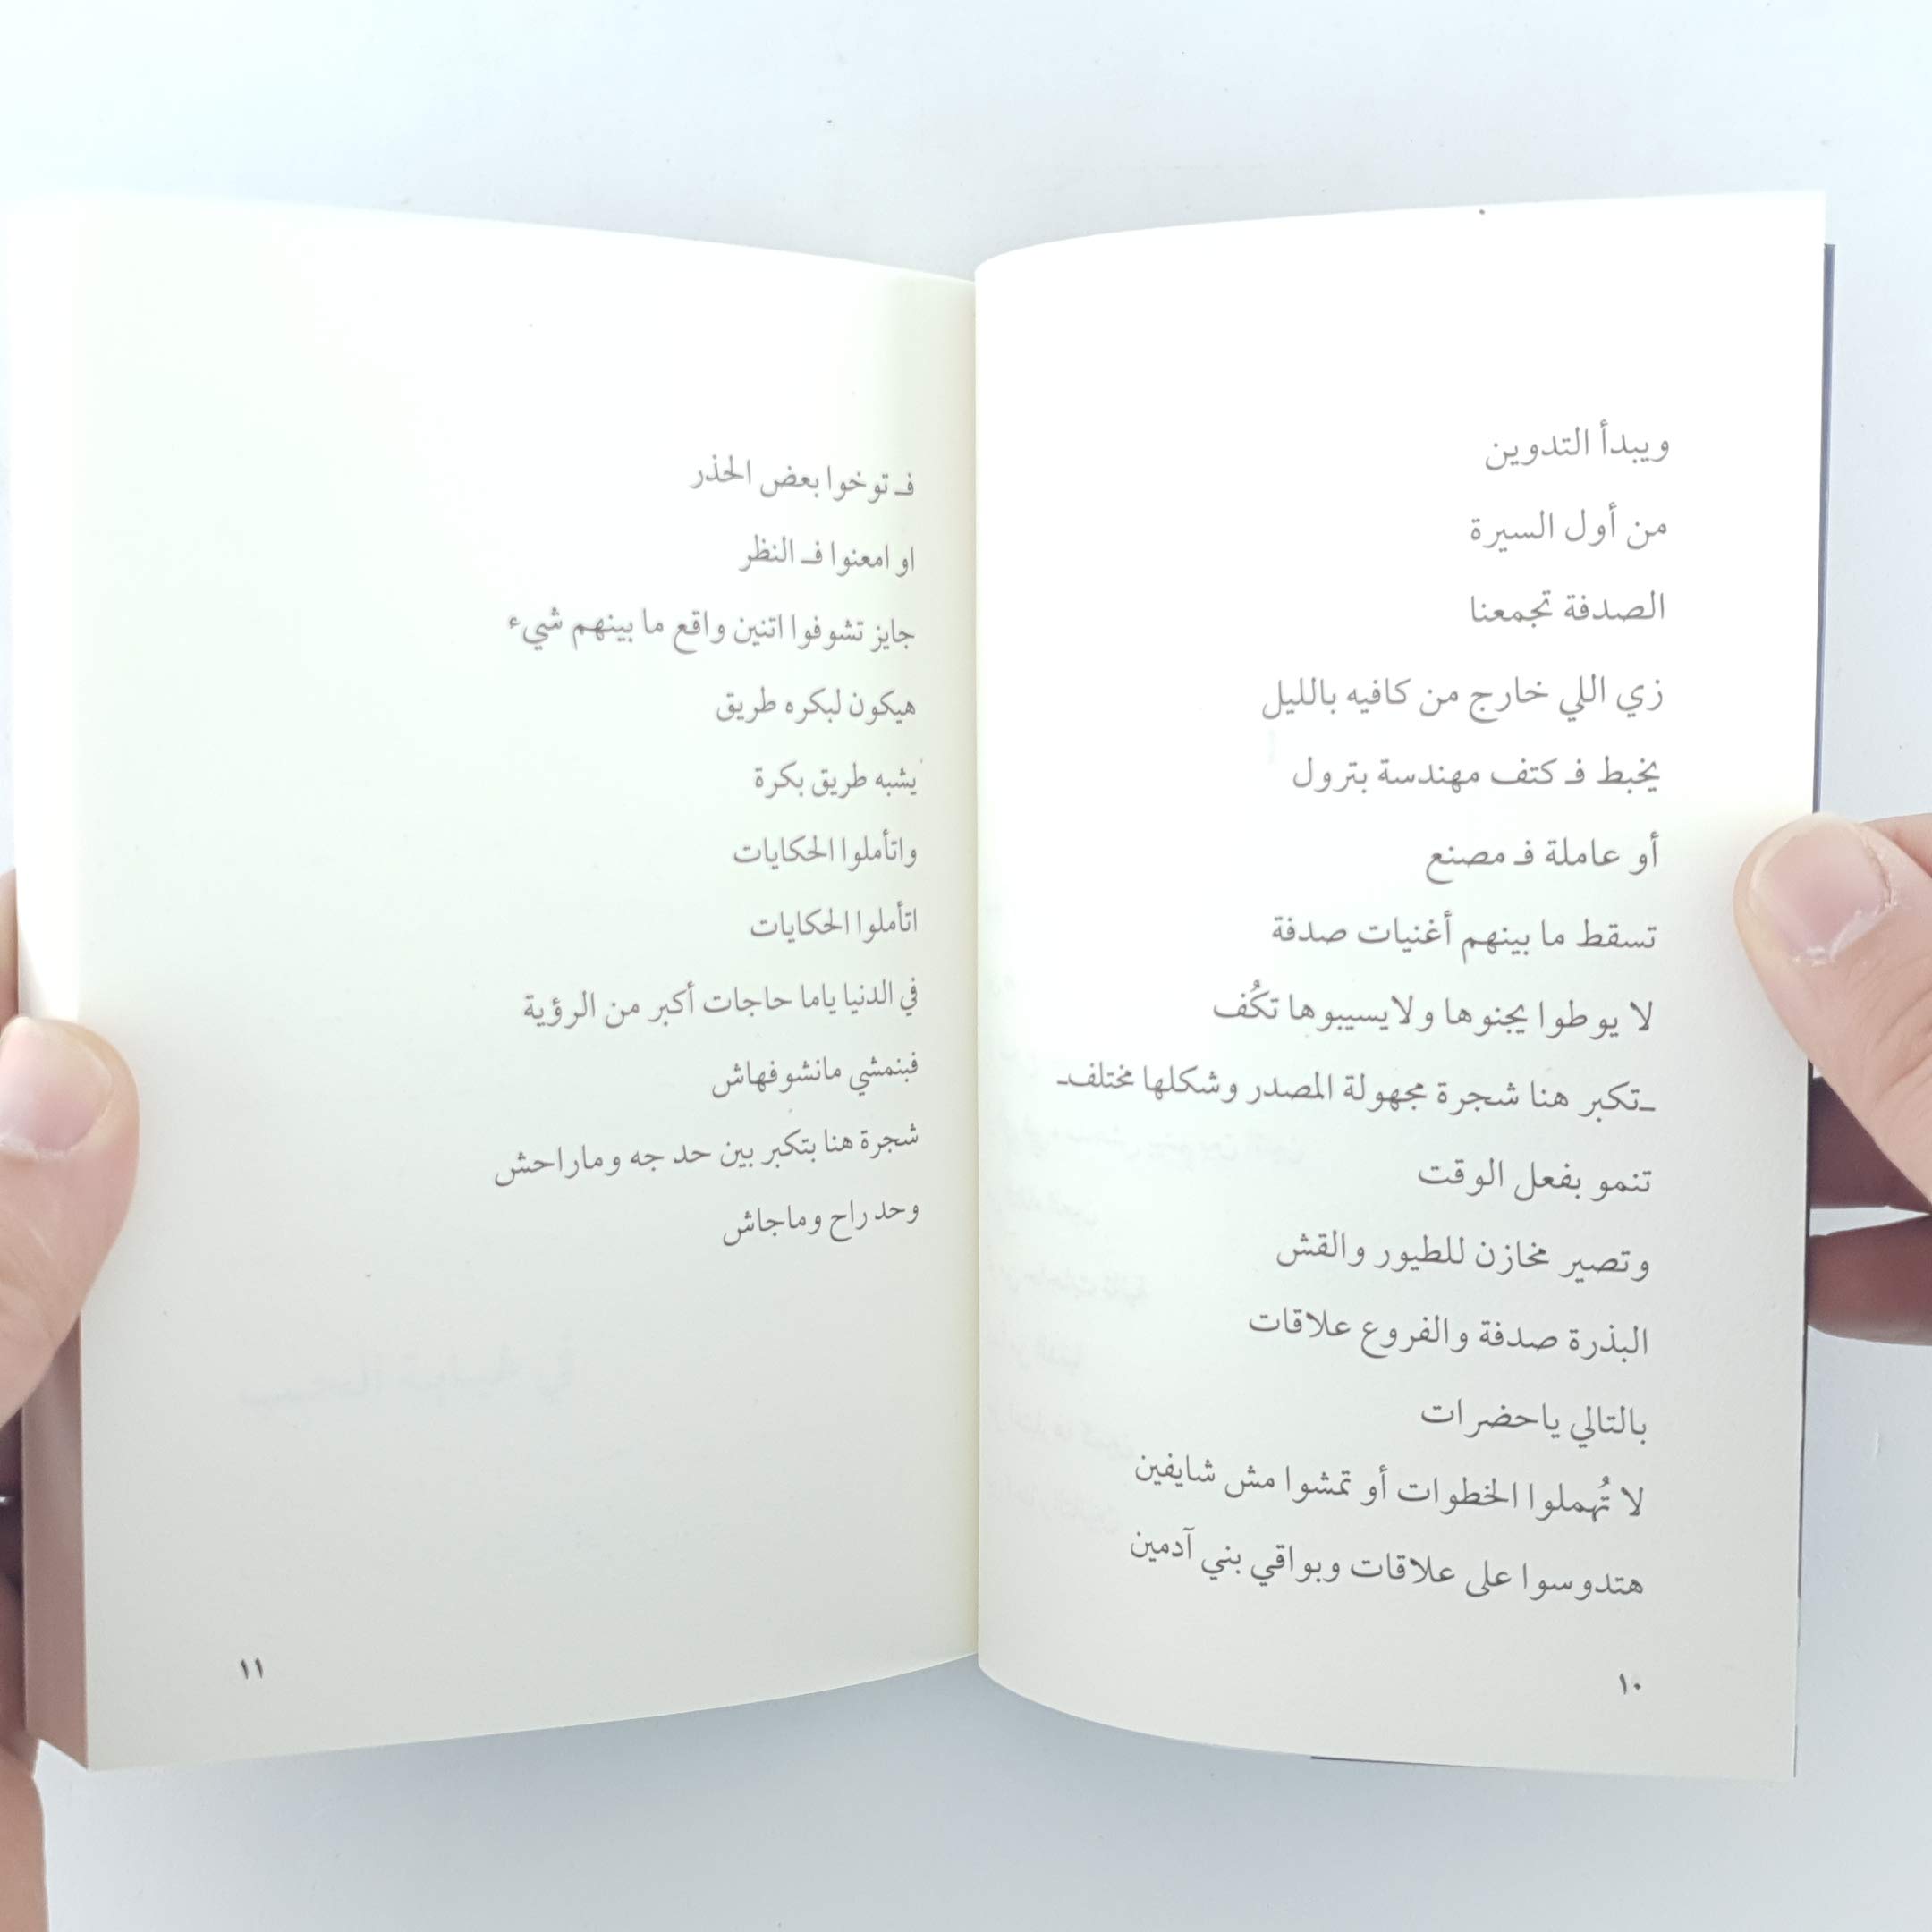 ويبدأ التدوين
من أول السيرة
الصدفة تجمعنا
زي اللي خارج من كافيه بالليل
يخبط فـ كتف مهندسة بترول
أو عاملة فـ مصنع
تسقط ما بينهم أغنيات صدفة
لا يوطوا يجنوها ولايسيبوها تكُف
ـتكبر هنا شجرة مجهولة المصدر وشكلها مختلفـ
تنمو بفعل الوقت
وتصير مخازن للطيور والقش
البذرة صدفة والفروع علاقات
بالتالي ياحضرات
لا تُهملوا الخطوات أو تمشوا مش شايفين
هتدوسوا على علاقات وبواقي بني آدمين
١٠
فـ توخوا بعض الحذر
او امعنوا فـ النظر
جايز تشوفوا اتنين واقع ما بينهم شيء
هيكون لبكره طريق
يشبه طريق بكرة
واتأملوا الحكايات
اتأملوا الحكايات
في الدنيا ياما حاجات أكبر من الرؤية
فبنمشي مانشوفهاش
شجرة هنا بتكبر بين حد جه وماراحش
وحد راح وماجاش
١١